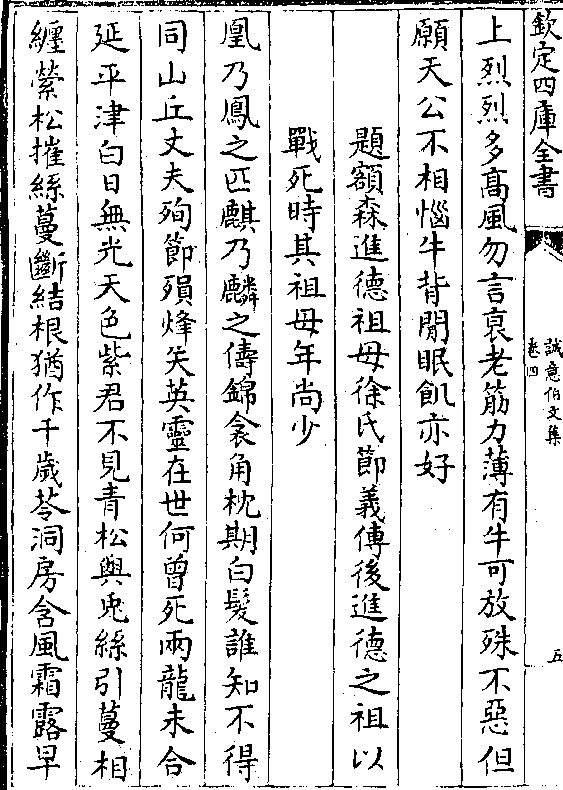 欽定四庫全書
誠意伯文集
卷四
五
上烈烈多髙風勿言衰老筋力薄有牛可放殊不惡但
願天公不相惱牛背閒眠飢亦好
題額森進德祖母徐氏節義傳後進德之祖以
戰死時其祖母年尚少
凰乃鳳之匹麒乃麟之儔錦衾角枕期白髮誰知不得
同山丘丈夫殉節殞烽矢英靈在世何曾死兩龍未合
延平津白日無光天色紫君不見青松與兎絲引蔓相
纒縈松摧絲蔓斷結根猶作千歲苓洞房含風霜露早